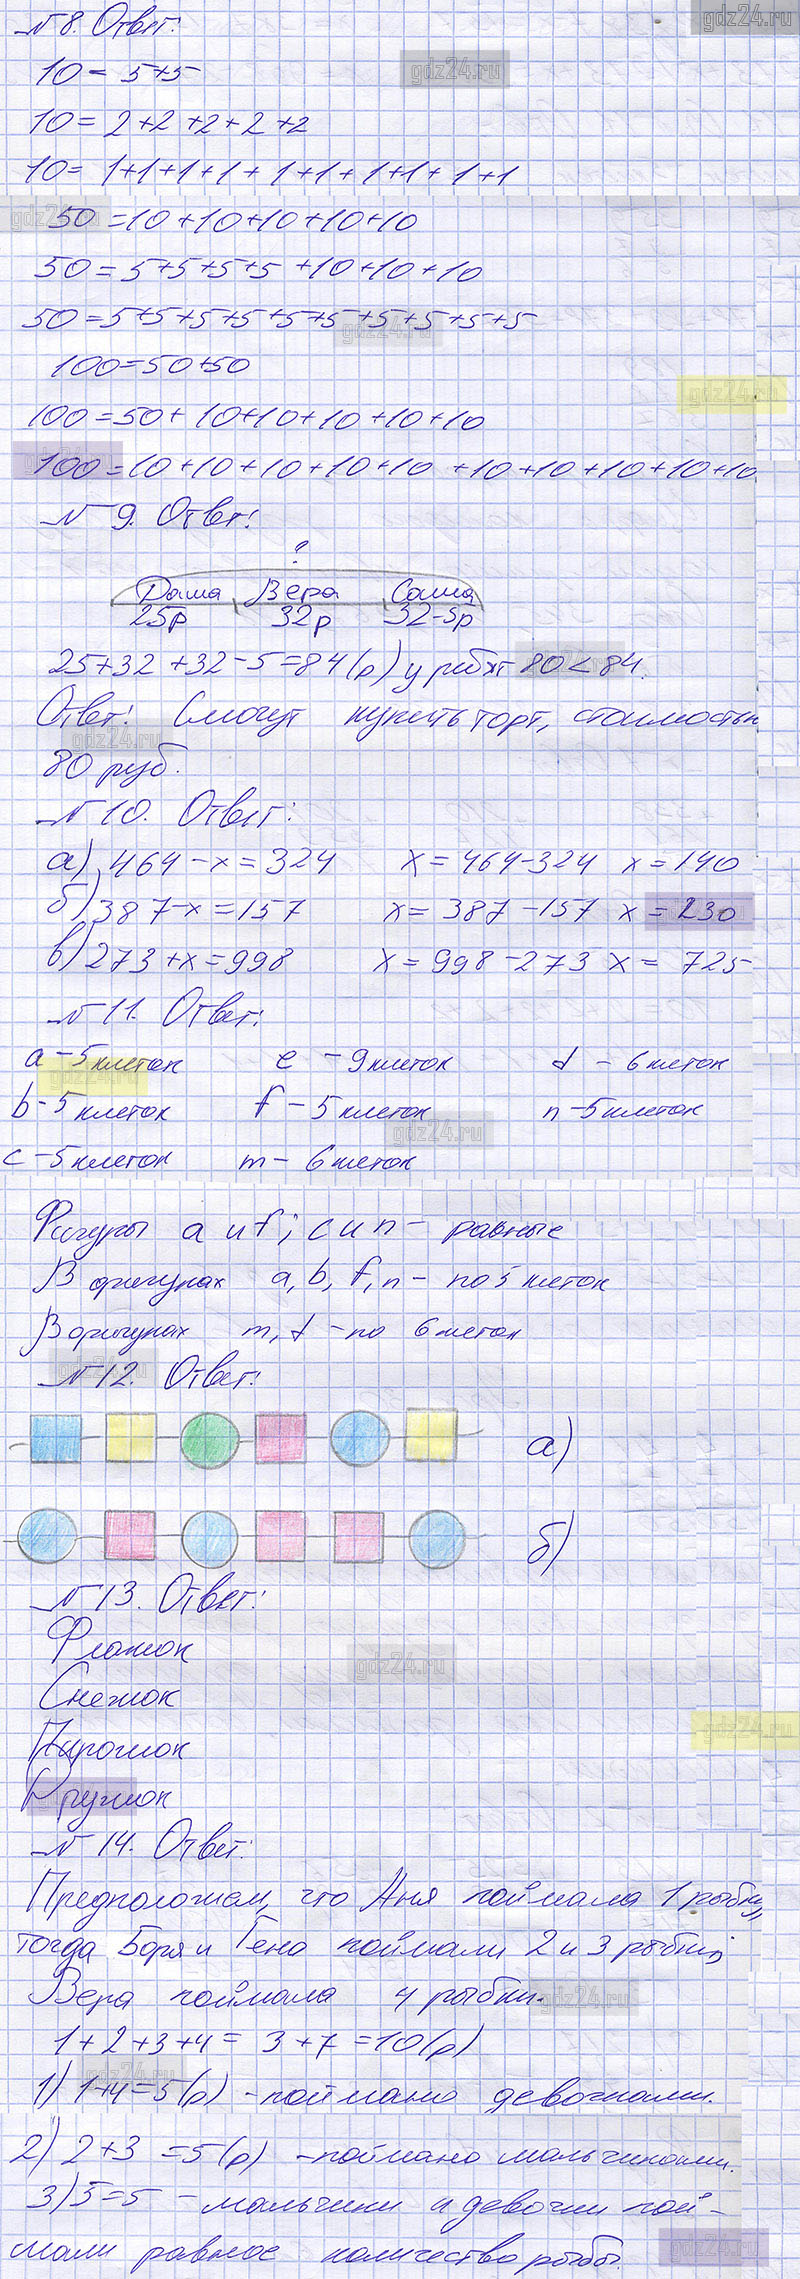 gdz24.ru
№ 8. Ответ:
10 = 5+5
gdz24.ru
10 = 2+2+2+2+2
10 = 1+1+1+1+1+1+1+1+1+1
gdz24.ru
50 = 10+10+10+10+10
50 = 5+5+5+5+10+10+10
50 = 5+5+5+5+5+5+5+5+5+5
gdz24.ru
100 = 50+50
gdz24.ru
100 = 50+10+10+10+10+10
100 = 10+10+10+10+10+10+10+10+10+10
№ 9. Ответ:
?
Даша Вера Саша
25р 32р 32-5р
25+32+32-5=84(р) у ребят 80<84.
Ответ: Смогут купить торт, стоимостью
gdz24.ru
80 руб.
№ 10. Ответ:
а) 464-х=324 х=464-324 х=140
б) 387-х=157 х=387-157 х=230
в) 273+х=998 х=998-273 х=725
№ 11. Ответ:
a – 5 клеток e – 9 клеток d – 6 клеток
gdz24.ru
b – 5 клеток f – 5 клеток n – 5 клеток
gdz24.ru
c – 5 клеток m – 6 клеток
Фигуры a и f; c и n – равные
В фигурах a, b, f, n – по 5 клеток
В фигурах m, d – по 6 клеток
gdz24.ru
№ 12. Ответ:
а)
б)
№ 13. Ответ:
Флажок
gdz24.ru
Снежок
gdz24.ru
Пирожок
Дружок
№ 14. Ответ:
Предположем, что Аня поймала 1 рыбку,
тогда Боря и Гена поймали 2 и 3 рыбки,
Вера поймала 4 рыбки.
gdz24.ru
1+2+3+4 = 3+7=10(р)
gdz24.ru
1) 1+4=5(р) – поймано девочками.
2) 2+3=5(р) – поймано мальчиками.
3) 5=5 – мальчики и девочки пой-
мали равное количество рыбы.
gdz24.ru